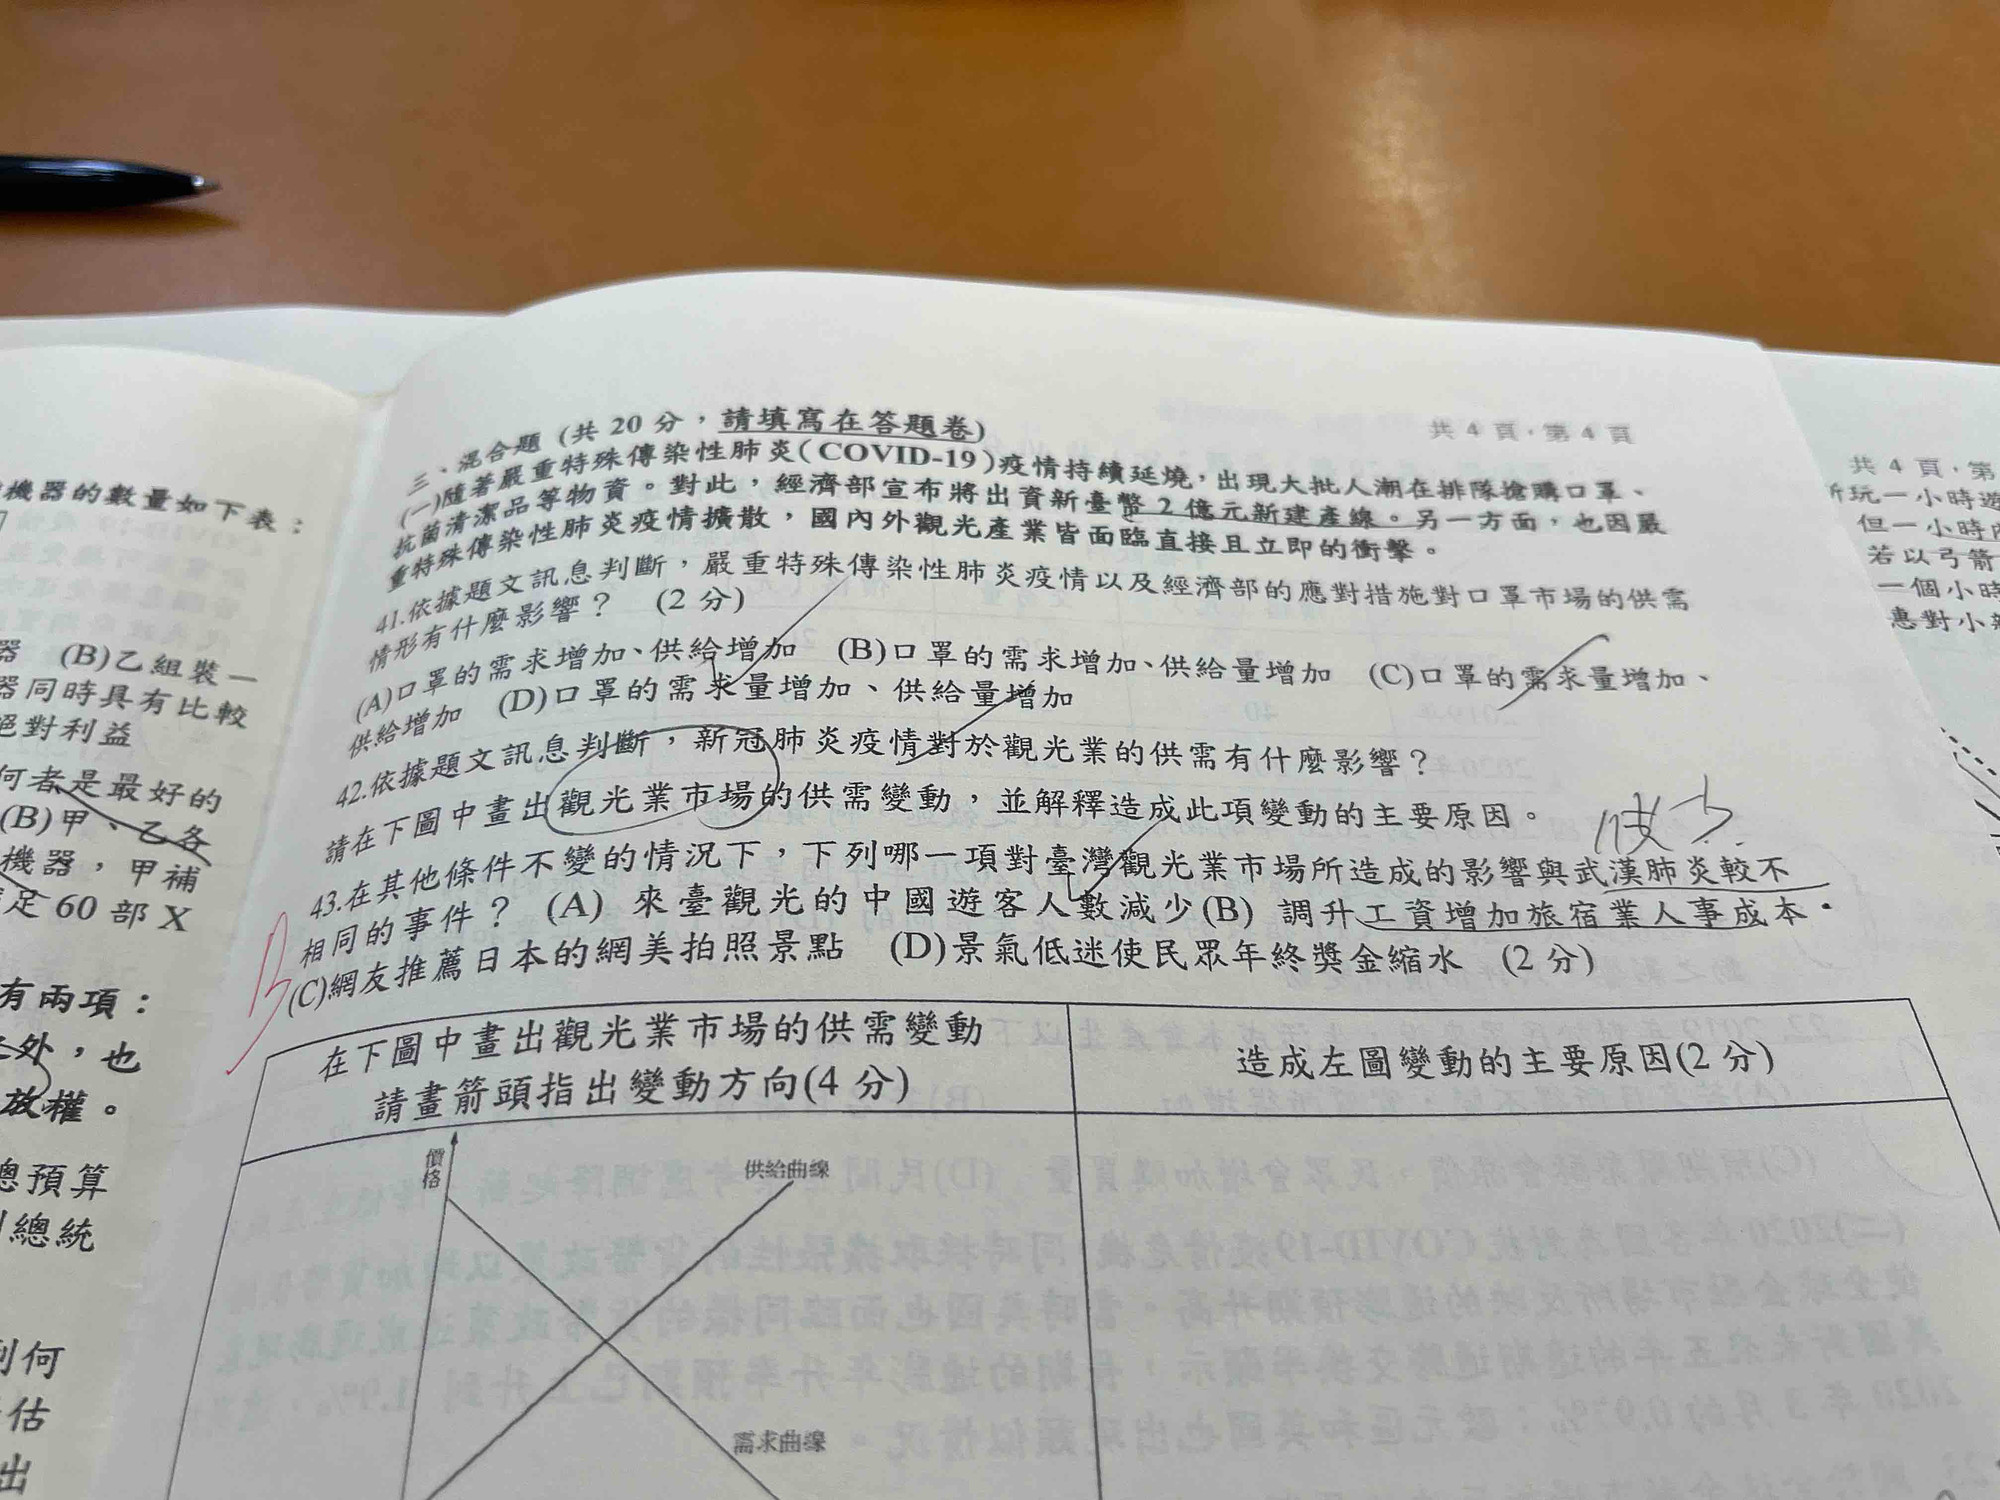 共 4 頁，第 4 頁
三、混合題 (共 20 分，請填寫在答題卷)
(一)隨著嚴重特殊傳染性肺炎(COVID-19)疫情持續延燒，出現大批人潮在排隊搶購口罩、
抗菌清潔品等物資。對此，經濟部宣布將出資新臺幣 2 億元新建產線。另一方面，也因嚴
重特殊傳染性肺炎疫情擴散，國內外觀光產業皆面臨直接且立即的衝擊。
41.依據題文訊息判斷，嚴重特殊傳染性肺炎疫情以及經濟部的應對措施對口罩市場的供需
情形有什麼影響？ (2 分)
(A)口罩的需求增加、供給增加 (B)口罩的需求增加、供給量增加 (C)口罩的需求量增加、
供給增加 (D)口罩的需求量增加、供給量增加
42.依據題文訊息判斷，新冠肺炎疫情對於觀光業的供需有什麼影響？
請在下圖中畫出觀光業市場的供需變動，並解釋造成此項變動的主要原因。
43.在其他條件不變的情況下，下列哪一項對臺灣觀光業市場所造成的影響與武漢肺炎較不
相同的事件？ (A) 來臺觀光的中國遊客人數減少(B) 調升工資增加旅宿業人事成本
(C)網友推薦日本的網美拍照景點 (D)景氣低迷使民眾年終獎金縮水 (2 分)
B
在下圖中畫出觀光業市場的供需變動
請畫箭頭指出變動方向(4 分)
造成左圖變動的主要原因(2 分)
價格
供給曲線
需求曲線
機器的數量如下表：
器 (B)乙組裝一
器同時具有比較
絕對利益
何者是最好的
(B)甲、乙各
機器，甲補
足 60 部 X
有兩項：
外，也
放權。
總預算
總統
到何
估
出
共 4 頁，第
所玩一小時遊
但一小時內
若以弓箭
一個小時
惠對小